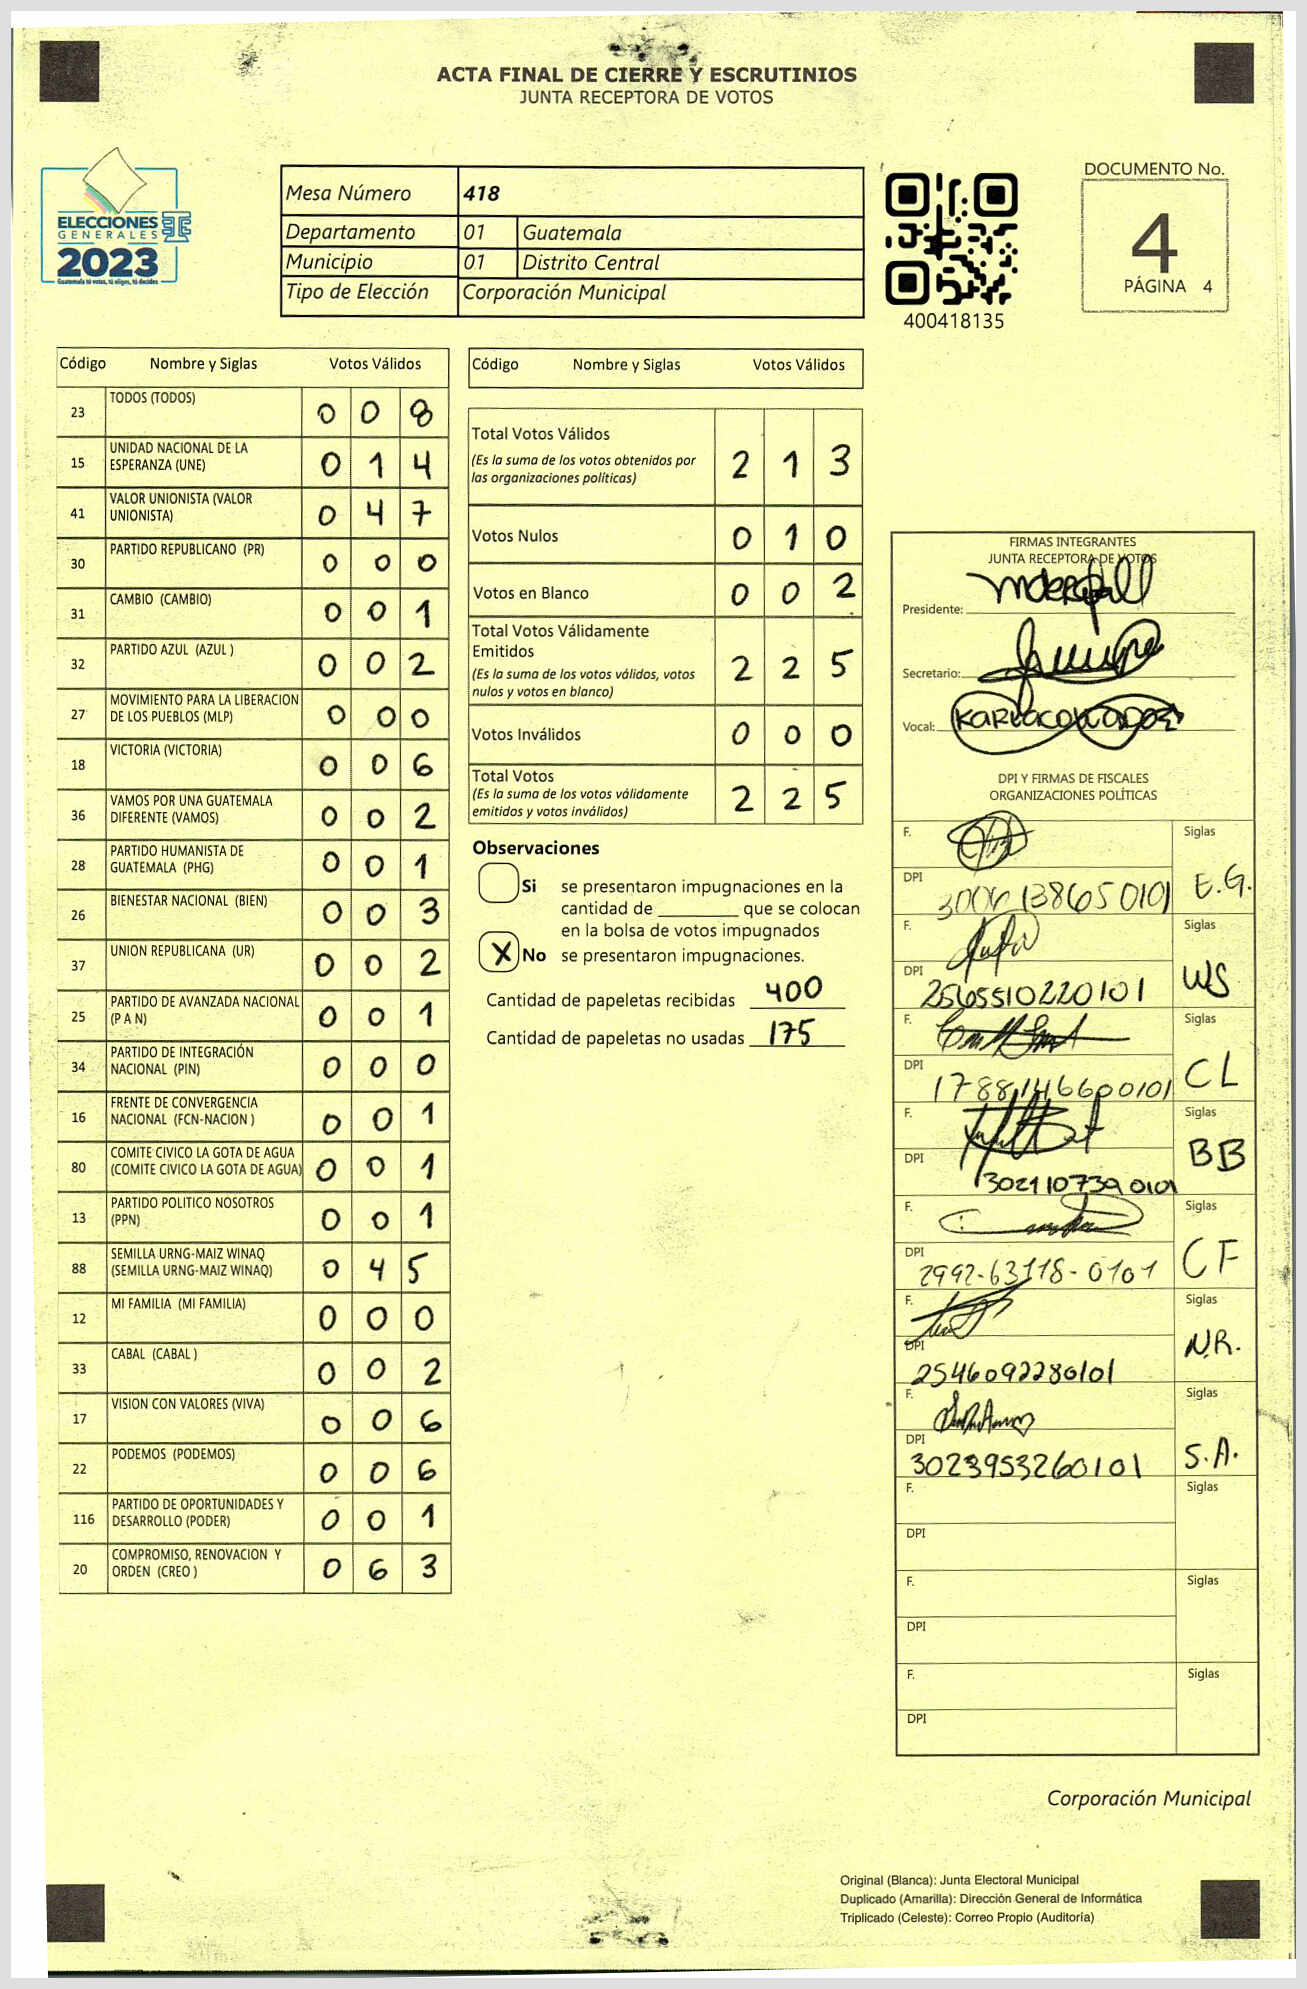 ACTA FINAL DE CIERRE Y ESCRUTINIOS
JUNTA RECEPTORA DE VOTOS
ELECCIONES
GENERALES
2023
Guatemala tú votas, tú eliges, tú decides
Mesa Número 418
Departamento 01 Guatemala
Municipio 01 Distrito Central
Tipo de Elección Corporación Municipal
400418135
DOCUMENTO No.
4
PÁGINA 4
Código Nombre y Siglas Votos Válidos
23 TODOS (TODOS) 0 0 8
15 UNIDAD NACIONAL DE LA
ESPERANZA (UNE) 0 1 4
41 VALOR UNIONISTA (VALOR
UNIONISTA) 0 4 7
30 PARTIDO REPUBLICANO (PR) 0 0 0
31 CAMBIO (CAMBIO) 0 0 1
32 PARTIDO AZUL (AZUL ) 0 0 2
27 MOVIMIENTO PARA LA LIBERACION
DE LOS PUEBLOS (MLP) 0 0 0
18 VICTORIA (VICTORIA) 0 0 6
36 VAMOS POR UNA GUATEMALA
DIFERENTE (VAMOS) 0 0 2
28 PARTIDO HUMANISTA DE
GUATEMALA (PHG) 0 0 1
26 BIENESTAR NACIONAL (BIEN) 0 0 3
37 UNION REPUBLICANA (UR) 0 0 2
25 PARTIDO DE AVANZADA NACIONAL
(P A N) 0 0 1
34 PARTIDO DE INTEGRACIÓN
NACIONAL (PIN) 0 0 0
16 FRENTE DE CONVERGENCIA
NACIONAL (FCN-NACION ) 0 0 1
80 COMITE CIVICO LA GOTA DE AGUA
(COMITE CIVICO LA GOTA DE AGUA) 0 0 1
13 PARTIDO POLITICO NOSOTROS
(PPN) 0 0 1
88 SEMILLA URNG-MAIZ WINAQ
(SEMILLA URNG-MAIZ WINAQ) 0 4 5
12 MI FAMILIA (MI FAMILIA) 0 0 0
33 CABAL (CABAL ) 0 0 2
17 VISION CON VALORES (VIVA) 0 0 6
22 PODEMOS (PODEMOS) 0 0 6
116 PARTIDO DE OPORTUNIDADES Y
DESARROLLO (PODER) 0 0 1
20 COMPROMISO, RENOVACION Y
ORDEN (CREO ) 0 6 3
Código Nombre y Siglas Votos Válidos
Total Votos Válidos
(Es la suma de los votos obtenidos por
las organizaciones políticas) 2 1 3
Votos Nulos 0 1 0
Votos en Blanco 0 0 2
Total Votos Válidamente
Emitidos
(Es la suma de los votos válidos, votos
nulos y votos en blanco) 2 2 5
Votos Inválidos 0 0 0
Total Votos
(Es la suma de los votos válidamente
emitidos y votos inválidos) 2 2 5
Observaciones
Si se presentaron impugnaciones en la
cantidad de ________ que se colocan
en la bolsa de votos impugnados
X No se presentaron impugnaciones.
Cantidad de papeletas recibidas 400
Cantidad de papeletas no usadas 175
FIRMAS INTEGRANTES
JUNTA RECEPTORA DE VOTOS
Presidente:
Secretario:
Vocal:
DPI Y FIRMAS DE FISCALES
ORGANIZACIONES POLÍTICAS
F. Siglas
DPI 3006138650101 E.G.
F. Siglas
DPI 2565510220101 WS
F. Siglas
DPI 1788146600101 CL
F. Siglas
DPI 3021107390101 BB
F. Siglas
DPI 2992-63118-0101 CF
F. Siglas
DPI 2546092280101 N.R.
F. Siglas
DPI 3023953260101 S.A.
F. Siglas
DPI
F. Siglas
DPI
F. Siglas
DPI
Corporación Municipal
Original (Blanca): Junta Electoral Municipal
Duplicado (Amarilla): Dirección General de Informática
Triplicado (Celeste): Correo Propio (Auditoría)